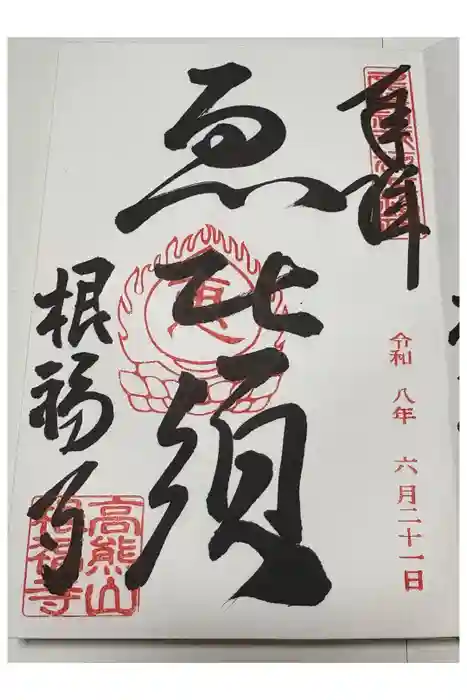 奉拝
令和八年 六月二十一日
恵比須
根福寺
高熊山
根福寺